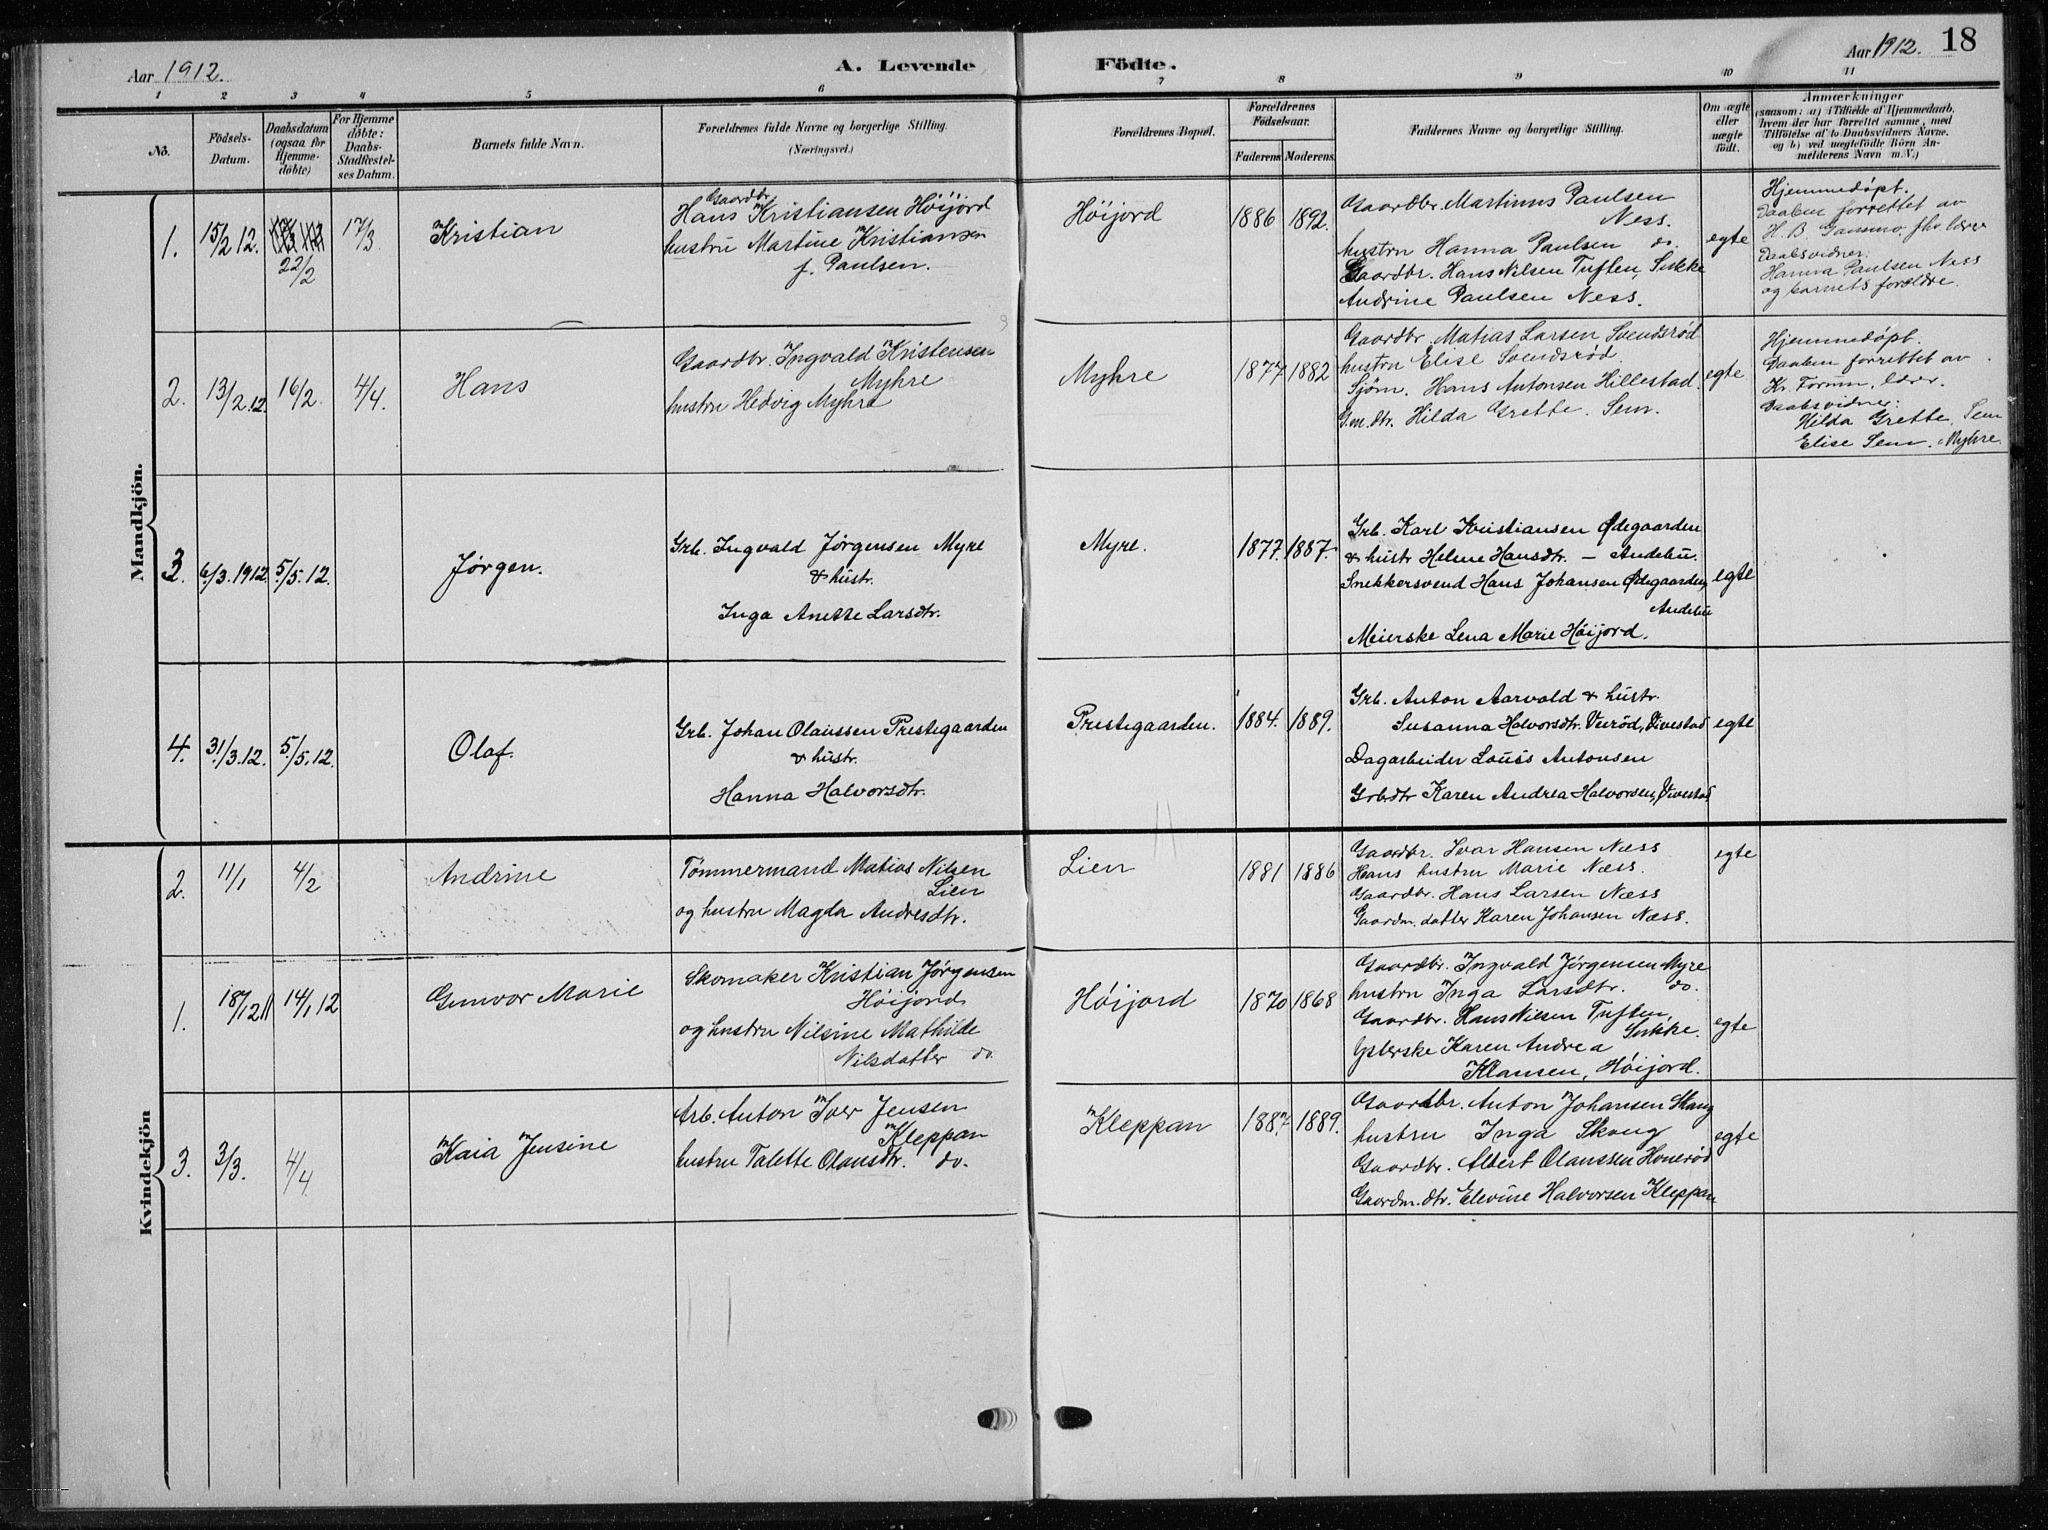 Aar 1912.
A. Levende
Födte.
Aar 1912.
18
1 2 3 4 5 6 7 8 9 10 11
No.
Födsels-
Datum.
Daabsdatum
(ogsaa for
Hjemme-
döbte)
For Hjemme
döbte:
Daabs-
Stadfæstel-
ses Datum.
Barnets fulde Navn.
Forældrenes fulde Navne og borgerlige Stilling.
(Næringsvei.)
Forældrenes Bopæl.
Forældrenes
Födselsaar.
Faderens.
Moderens.
Faddernes Navne og borgerlige Stilling.
Om ægte
eller
uægte
födt.
Anmærkninger
(saasom: a) i Tilfælde af Hjemmedaab,
hvem der har forrettet samme, med
Tilföielse af to Daabsvidners Navne.
og b) ved uægtefödte Börn An-
melderens Navn m.V.)
Mandkjön.
1.
15/2 12.
22/2
17/3
Kristian
Gaardbr.
Hans Kristiansen Höijord
hustru Martine Kristiansen
f. Paulsen.
Höijord
1886
1892.
Gaardbr. Martinus Paulsen
Ness.
hustru Hanna Paulsen do.
Gaardbr. Hans Nilsen Tuften, Sukke
Andrine Paulsen Ness.
egte
Hjemmedøpt.
Daaben forrettet av
H. B. Gammo, fhv. lærer
Daabsvidner:
Hanna Paulsen Ness
og barnets forældre.
2.
13/2.12.
16/2.
4/4.
Hans
Gaardbr. Ingvald Kristensen
Myhre
hustru Hedvig Myhre
Myhre
1877
1882
Gaardbr. Matias Larsen Svendsrød
hustru Elise Svendsrød.
Sjøm. Hans Antonsen Hillestad.
G.m.dtr. Hilda Grette. Sem.
egte
Hjemmedøpt.
Daaben forrettet av
Kr. Forum, lærer.
Daabsvidner:
Hilda Grette. Sem
Elise Sem. Myhre.
3.
6/3.1912.
5/5.12.
Jørgen.
Grb. Ingvald Jørgensen Myre
& hustr.
Inga Anette Larsdtr.
Myre.
1877.
1887.
Grb. Karl Kristiansen Ødegaarden
& hustr Helene Hansdtr. — Andebu.
Snekkersvend Hans Johansen Ødegaarden,
Andebu
Meierske Lena Marie Höijord.
egte
4.
31/3.12.
5/5.12.
Olaf.
Grb. Johan Olaussen Prestegaarden
& hustr.
Hanna Halvorsdtr.
Prestegaarden.
1884.
1889.
Grb. Anton Aarvold & hustr.
Susanna Halvorsdtr. Veiröd, Vivestad
Dagarbeider Louis Antonsen
Grb.dtr Karen Andrea Halvorsen, Vivestad
egte
Kvindekjön
2.
11/1
4/2
Andrine
Tömmermand Matias Nilsen
Lien
og hustru Magda Andresdtr.
Lien
1881
1886
Gaardbr. Ivar Hansen Næss
Hans hustru Marie Næss.
Gaardbr. Hans Larsen Næss
Gaardm. datter Karen Johansen Næss.
egte
1.
18/12 11
14/1 12
Gunvor Marie
Skomaker Kristian Jørgensen
Höijord
og hustru Nilsine Mathilde
Nilsdatter do.
Höijord
1870
1868
Gaardbr. Ingvald Jørgensen Myre
hustru Inga Larsdtr. do.
Gaardbr. Hans Nilsen Tuften,
Sukke.
Ysterske Karen Andrea
Klausen, Höijord.
egte
3.
3/3.
4/4
Kaia Jensine
Arb. Anton Iver Jensen
Kleppan
hustru Talette Olausdtr. do.
Kleppan
1887
1889.
Gaardbr. Anton Johansen Skaug
hustru Inga Skaug
Gaardbr. Albert Olaussen Honerød
Gaardm. dtr. Elevine Halvorsen Kleppan
egte